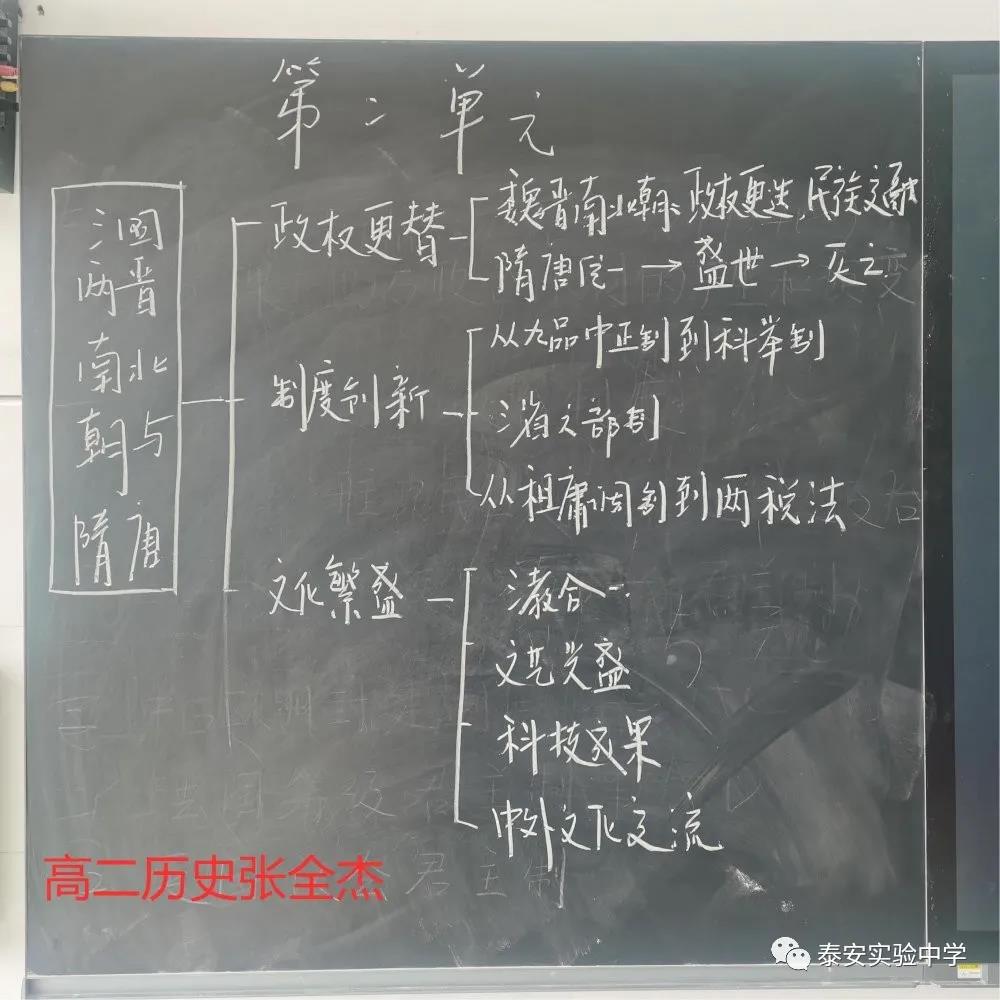 第二单元
三国
两晋
南北
朝与
隋唐
政权更替
魏晋南北朝:政权更迭,民族交融
隋唐统一→盛世→灭亡
制度创新
从九品中正制到科举制
三省六部制
从租庸调制到两税法
文化繁盛
三教合一
文艺兴盛
科技成果
中外文化交流
高二历史张全杰
君主制
泰安实验中学